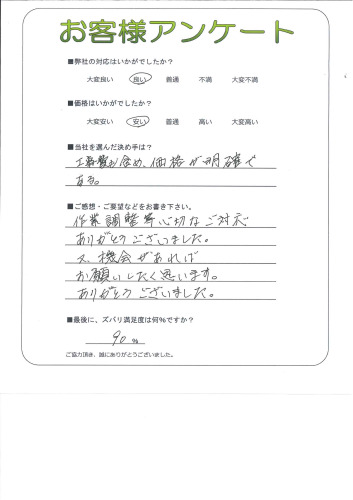 お客様アンケート
■弊社の対応はいかがでしたか?
大変良い 良い 普通 不満 大変不満
■価格はいかがでしたか?
大変安い 安い 普通 高い 大変高い
■当社を選んだ決め手は?
工事費も含め、価格が明確で
ある。
■ご感想・ご要望などをお書き下さい。
作業調整等心切なご対応
ありがとうございました。
又、機会があれば
お願いしたく思います。
ありがとうございました。
■最後に、ズバリ満足度は何%ですか?
90 %
ご協力頂き、誠にありがとうございました。